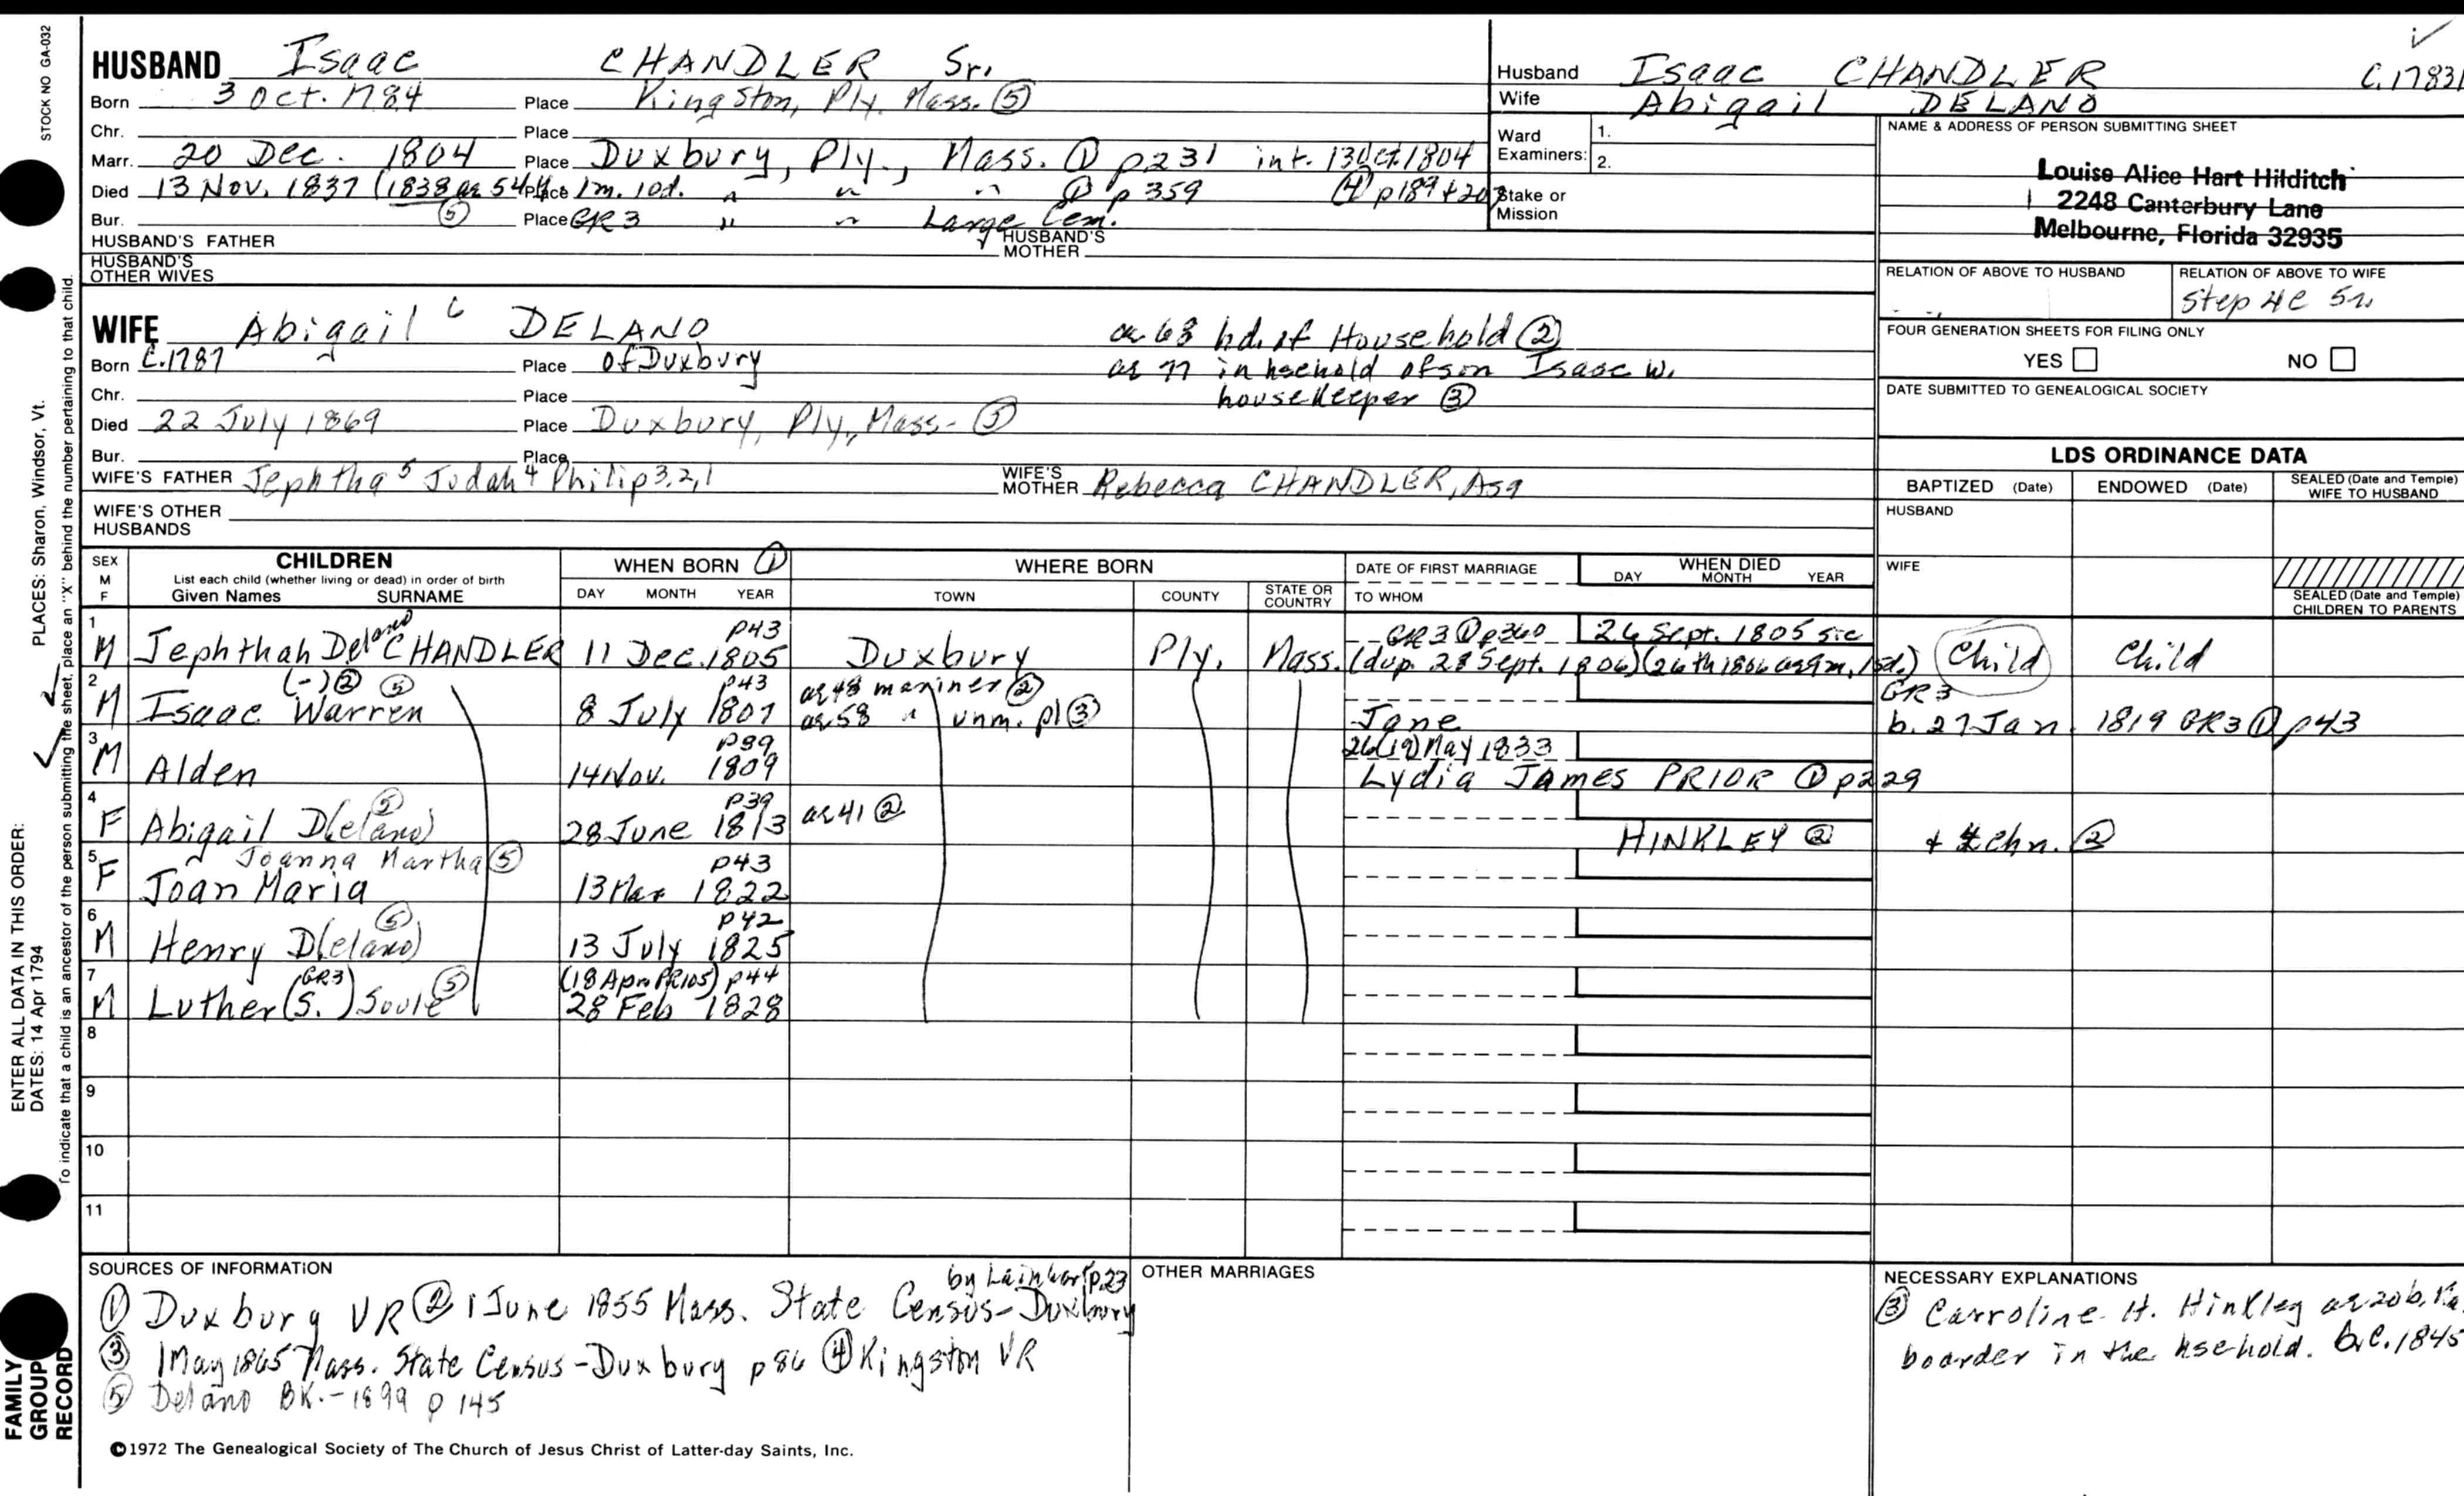 STOCK NO GA-032
HUSBAND Isaac CHANDLER Sr.
Born 3 Oct. 1784 Place Kingston, Ply. Mass. ⑤
Chr. Place
Marr. 20 Dec. 1804 Place Duxbury, Ply., Mass. ① p231 int. 13 Oct. 1804
Died 13 Nov. 1837 (1838 ae 54y Place 1m. 10d. " " " ① p359 ④ p189 + 207
Bur. ⑤ Place GR3 " " Large Cem.
HUSBAND'S FATHER HUSBAND'S MOTHER
HUSBAND'S OTHER WIVES
Husband Isaac CHANDLER C.1783
Wife Abigail DELANO
Ward Examiners: 1.
2.
Stake or Mission
NAME & ADDRESS OF PERSON SUBMITTING SHEET
Louise Alice Hart Hilditch
2248 Canterbury Lane
Melbourne, Florida 32935
RELATION OF ABOVE TO HUSBAND RELATION OF ABOVE TO WIFE
Step 4C 5r.
FOUR GENERATION SHEETS FOR FILING ONLY
YES NO
DATE SUBMITTED TO GENEALOGICAL SOCIETY
WIFE Abigail 6 DELANO ae 68 hd. of Household ②
Born C.1787 Place of Duxbury ae 77 in hsehold of son Isaac W.
Chr. Place housekeeper ③
Died 22 July 1869 Place Duxbury, Ply., Mass- ⑤
Bur. Place
WIFE'S FATHER Jephtha 5 Judah 4 Philip 3,2,1 WIFE'S MOTHER Rebecca CHANDLER, Asa
WIFE'S OTHER HUSBANDS
LDS ORDINANCE DATA
BAPTIZED (Date) ENDOWED (Date) SEALED (Date and Temple) WIFE TO HUSBAND
HUSBAND
WIFE
SEALED (Date and Temple) CHILDREN TO PARENTS
SEX M F CHILDREN List each child (whether living or dead) in order of birth Given Names SURNAME
WHEN BORN ① DAY MONTH YEAR
WHERE BORN TOWN COUNTY STATE OR COUNTRY
DATE OF FIRST MARRIAGE TO WHOM
WHEN DIED DAY MONTH YEAR
1 p43 GR3 ① p360 26 Sept. 1805 sic
M Jephthah Delano CHANDLER 11 Dec. 1805 Duxbury Ply. Mass. (dup. 28 Sept. 1806) (26th 1806 ae 9m, 15d.) Child Child
2 (-) ② ⑤ p43 ae 48 mariner ② GR3
M Isaac Warren 8 July 1807 ae 58 " unm. p1 ③ Jane b. 27 Jan. 1819 GR3 ① p43
3 p39 26 (19) May 1833
M Alden 14 Nov. 1809 Lydia James PRIOR ① p229
4 ⑤ p39
F Abigail D(elano) 28 June 1813 ae 41 ② HINKLEY ② + 4 chn. ②
5 Joanna Martha ⑤ p43
F Joan Maria 13 Mar 1822
6 ⑤ p42
M Henry D(elano) 13 July 1825
7 (GR3) ⑤ (18 Apr. PR105) p44
M Luther (S.) Soule 28 Feb 1828
8
9
10
11
SOURCES OF INFORMATION by Lainhart p.23
① Duxbury VR ② 1 June 1855 Mass. State Census-Duxbury
③ 1 May 1865 Mass. State Census-Duxbury p86 ④ Kingston VR
⑤ Delano BK.-1899 p 145
OTHER MARRIAGES
NECESSARY EXPLANATIONS
③ Carroline H. Hinkley ae 20 b.
boarder in the hsehold. b.c.1845
©1972 The Genealogical Society of The Church of Jesus Christ of Latter-day Saints, Inc.
PLACES: Sharon, Windsor, Vt.
To indicate that a child is an ancestor of the person submitting the sheet, place an "X" behind the number pertaining to that child.
ENTER ALL DATA IN THIS ORDER:
DATES: 14 Apr 1794
FAMILY
GROUP
RECORD